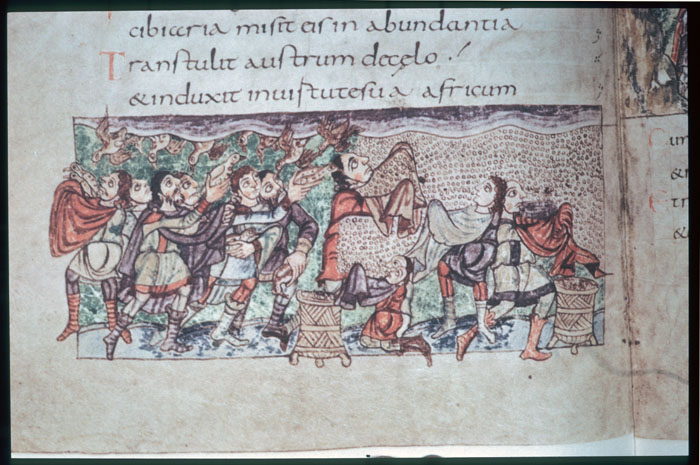 cibiaria misit eis in abundantia
Transtulit austrum decęlo .
& induxit inuirtute sua africum